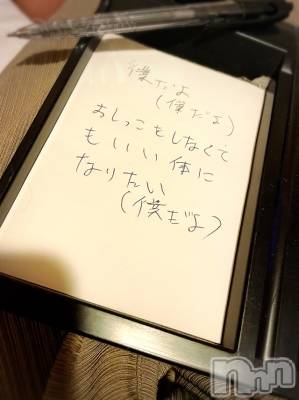 僕だよ
(僕だよ)
おしっこもしなくて
もいい体に
なりたい
(僕だよ)